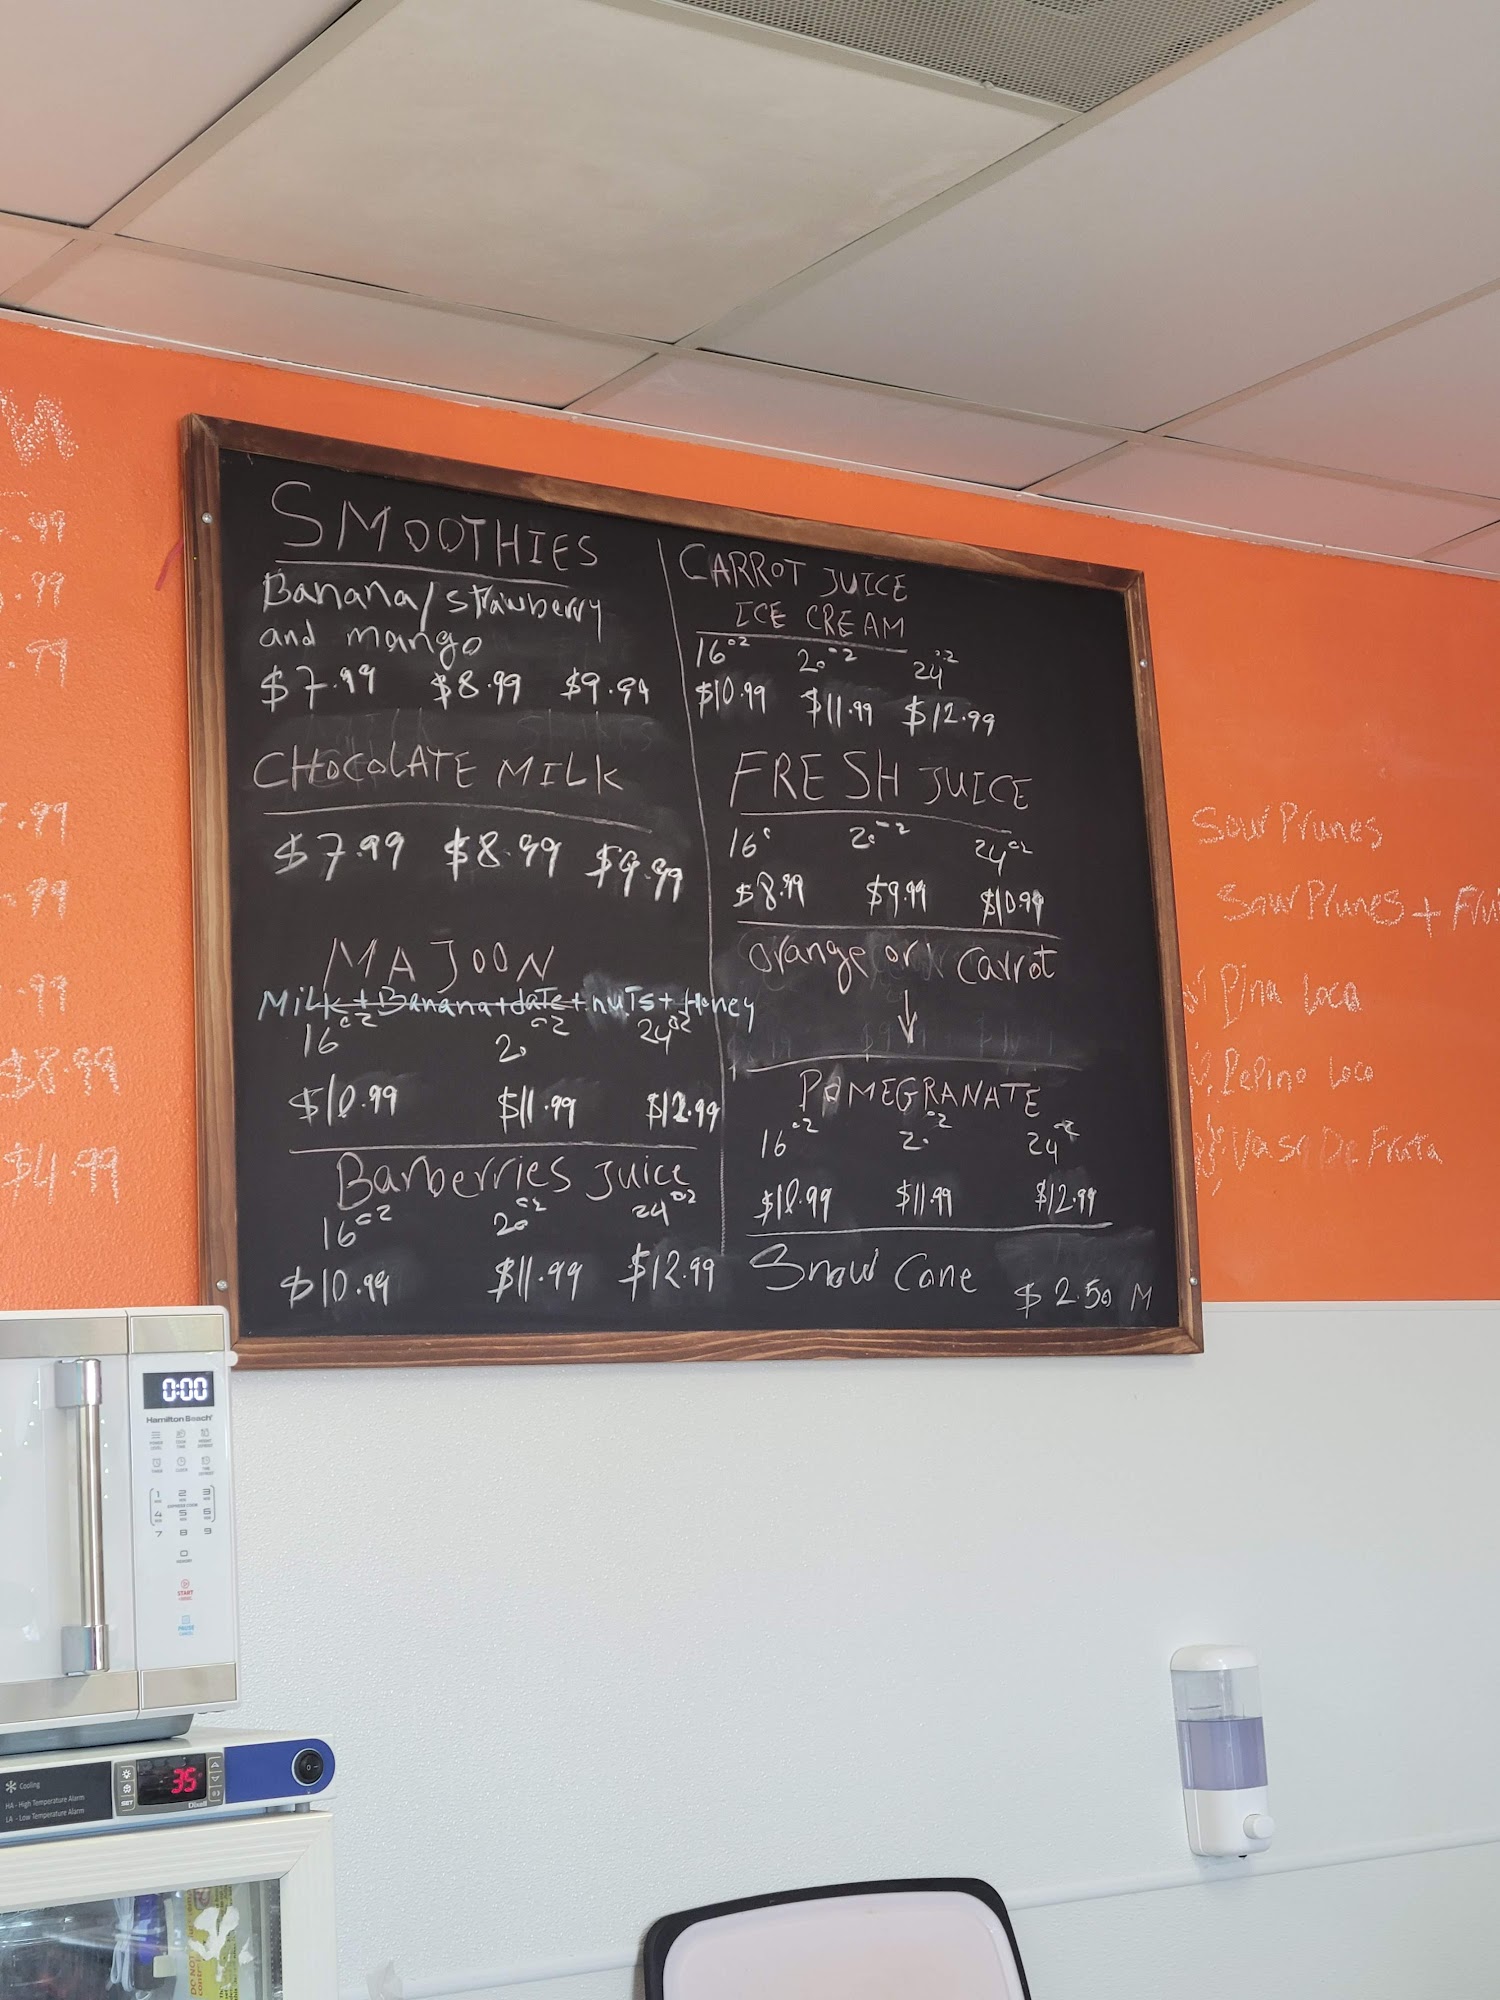 SMOOTHIES
Banana/strawberry
and mango
$7.99 $8.99 $9.99
CHOCOLATE MILK
$7.99 $8.99 $9.99
MAJOON
Milk + Banana + date + nuts + Honey
16oz 20oz 24oz
$10.99 $11.99 $12.99
Barberries Juice
16oz 20oz 24oz
$10.99 $11.99 $12.99
CARROT JUICE
ICE CREAM
16oz 20oz 24oz
$10.99 $11.99 $12.99
FRESH JUICE
16o 20oz 24oz
$8.99 $9.99 $10.99
Orange or Carrot
POMEGRANATE
16oz 20oz 24oz
$10.99 $11.99 $12.99
Snow Cone $2.50 M
.99
.99
.99
.99
.99
.99
$8.99
$4.99
Sour Prunes
Sour Prunes +
Pina Loca
Pepino Loco
Vaso De Fruta
0:00
Hamilton Beach
1 2 3
4 5 6
7 8 9
START
PAUSE
Cooling
HA - High Temperature Alarm
LA - Low Temperature Alarm
SET
35
Dixell